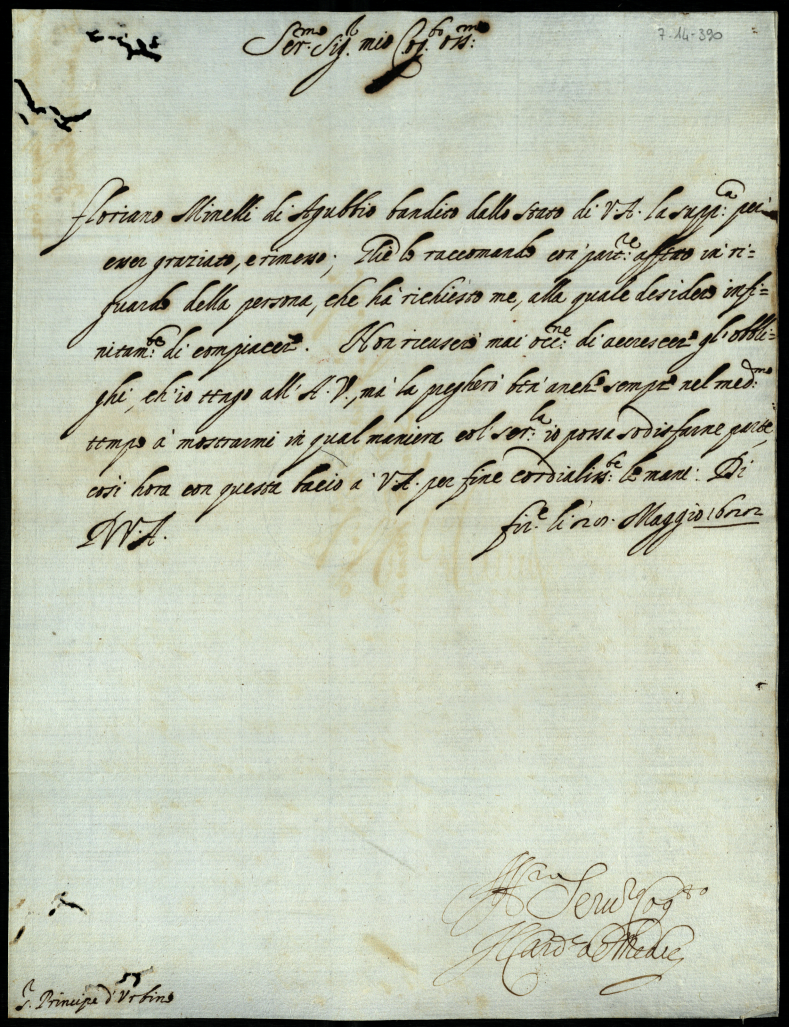 7-14-390
Ser.mo Sig.r mio Cog.to oss.mo
Floriano Minelli di Agubbio bandito dallo stato di V.A. la supp.ca per
esser graziato, e rimesso; Et io lo raccomando con part.re affetto in ri=
guardo della persona, che hà richiesto me, alla quale desidero infi=
nitam.te di compiacere. Non ricuserò mai occ.ne di accrescere gl'obbli=
ghi, ch'io tengo all'A.V., mà la pregherò ben anche sempre nel med.mo
tempo à mostrarmi in qual maniera col ser.la io possa sodisfarne parte,
così hora con questa bacio à V.A. per fine cordialiss.te le mani. Di
D V.A. fir.e li Maggio
Aff.mo Serv.re Cog.to
Il Card.le de Medici
S. Principe d'Urbino 57